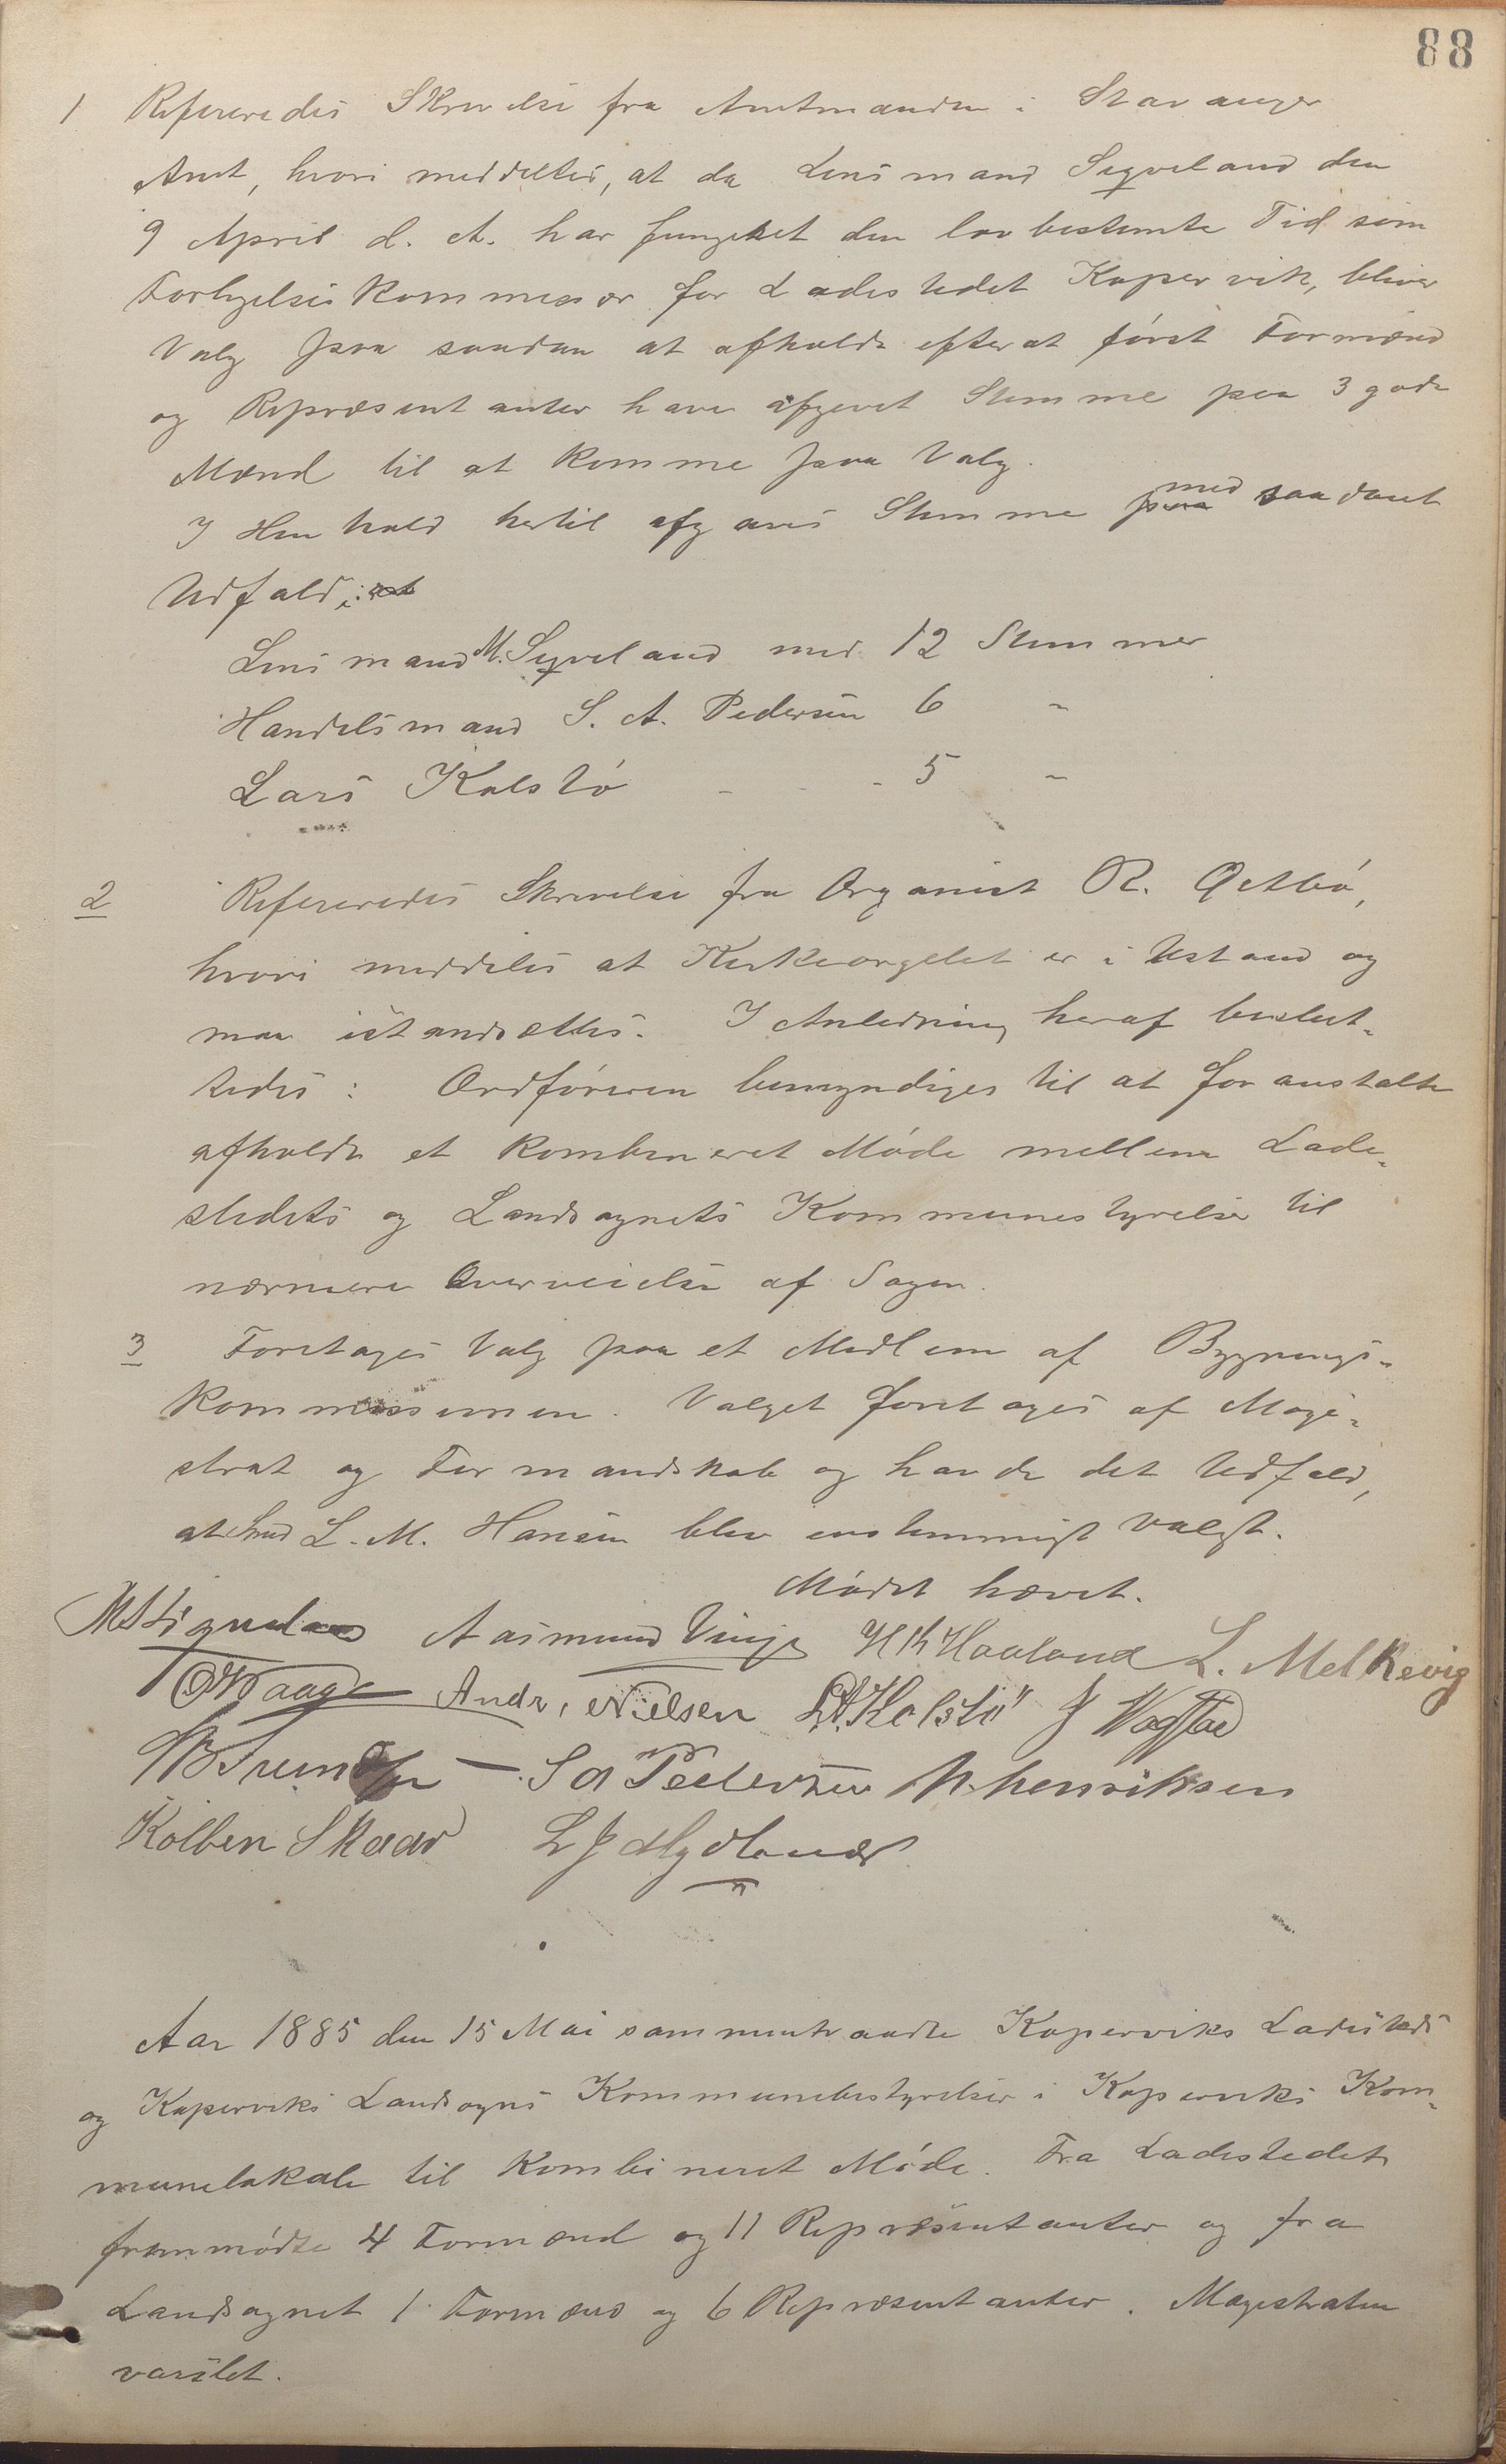 88
1 Refereredes Skrivelse fra Amtmanden i Stavanger
Amt, hvori meddeltes, at da Lensmand Sygveland den
9 April d. A. har fungeret den lovbestemte Tid som
Forligelseskommissær for Ladestedet Kopervik, bliver
Valg paa saadan at afholde efterat først Formænd
og Repræsentanter have afgivet Stemme paa 3 gode
Mænd til at komme paa Valg.
I Henhold hertil afgaves Stemme paa med saadant
Udfald:
Lensmand M. Sygveland med 12 Stemmer
Handelsmand S. A. Pedersen 6 "
Lars Kolstø - - - 5 "
2 Refereredes Skrivelse fra Organist R.
hvori meddeles at Kirkeorgelet er i Ustand og
maa istandsættes. I Anledning heraf beslut-
tedes: Ordføreren bemyndiges til at foranstalte
afholdt et kombineret Møde mellem Lade-
stedets og Landsognets Kommunestyrelse til
nærmere Overveielse af Sagen.
3 Foretages Valg paa et Medlem af Bygnings-
kommissionen. Valget foretages af Magi-
strat og Formandskab og havde det Udfald,
at Smed L. M. Hansen blev enstemmigt valgt.
Mødet hævet.
Aasmund Vinje H Th Haaland L. Melkevig
O Waage Andr. Nielsen L A. Kolstö J
S A Pedersen N. Henriksen
Kolben Skaar L J Mydland
Aar 1885 den 15 Mai sammentraadte Koperviks Ladesteds
og Koperviks Landsogns Kommunebestyrelser i Koperviks Kom-
munelokale til kombineret Møde. Fra Ladestedet
fremmødte 4 Formænd og 11 Repræsentanter og fra
Landsognet 1 Formænd og 6 Repræsentanter. Magistraten
varslet.